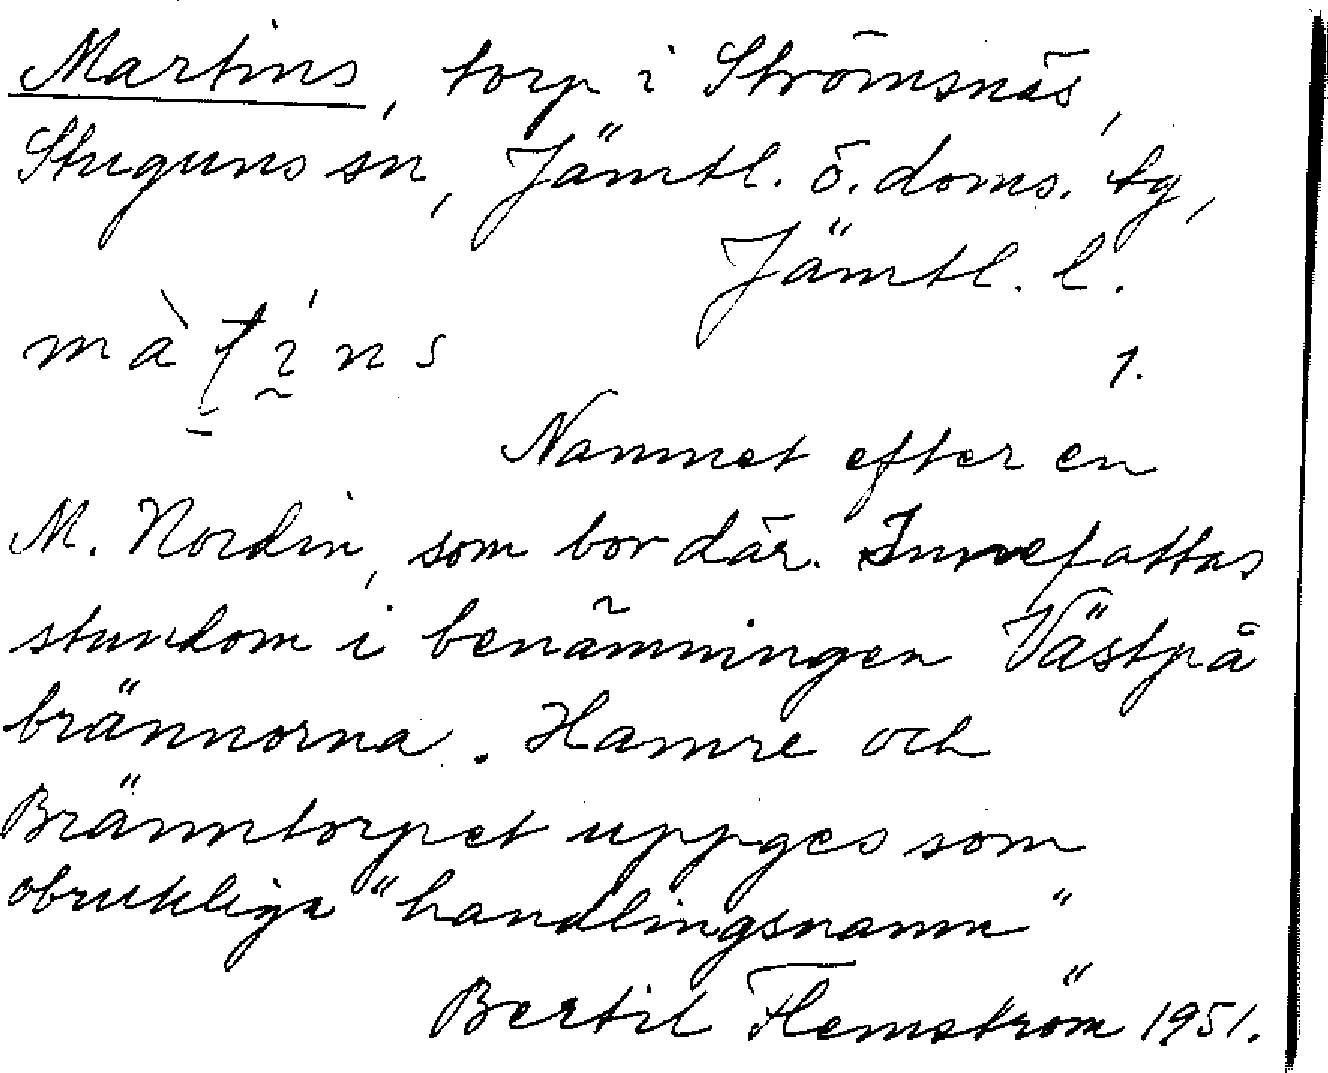 Martins, torp i Strömsnäs,
Stuguns sn, Jämtl. ö. doms. tg,
Jämtl. l.
1.
Namnet efter en
M. Nordin, som bor där. Innefattas
stundom i benämningen Västpå
brännorna. Hamre och
Bränntorpet uppges som
obrukliga "handlingsnamn"
Bertil Flemström 1951.